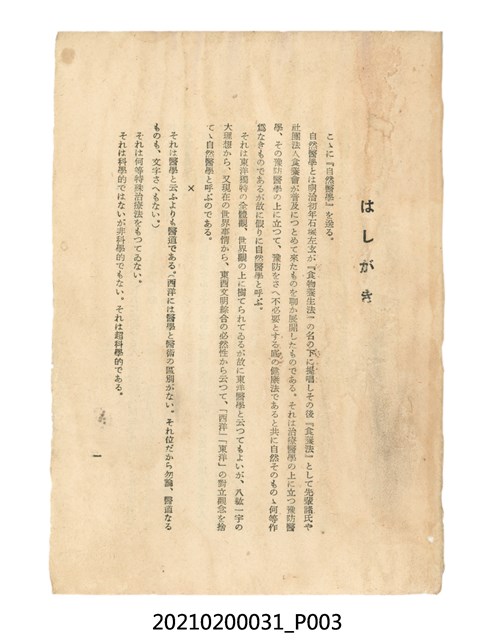 はしがき
こゝに『自然醫學』を送る。
自然醫學とは明治初年石塚左玄が『食物養生法』の名の下に提唱しその後『食養法』として先輩諸氏や
社團法人食養會が普及につとめて來たものを聊か展開したものである。それは治療醫學の上に立つ豫防醫
學、その豫防醫學の上に立つて、豫防をさへ不必要とする底の健康法であると共に自然そのものゝ何等作
爲なきものであるが故に假りに自然醫學と呼ぶ。
それは東洋獨特の全體觀、世界觀の上に樹てられてゐるが故に東洋醫學と云つてもよいが、八紘一宇の
大理想から、又現在の世界事情から、東西文明綜合の必然性から云つて、「西洋」「東洋」の對立觀念を捨
てゝ自然醫學と呼ぶのである。
×
それは醫學と云ふよりも醫道である。（西洋には醫學と醫術の區別がない。それ位だから勿論、醫道なる
ものも、文字さへもない。）
それは何等特殊治療法をもつてゐない。
それは科學的ではないが非科學的でもない。それは超科學的である。
一
20210200031_P003